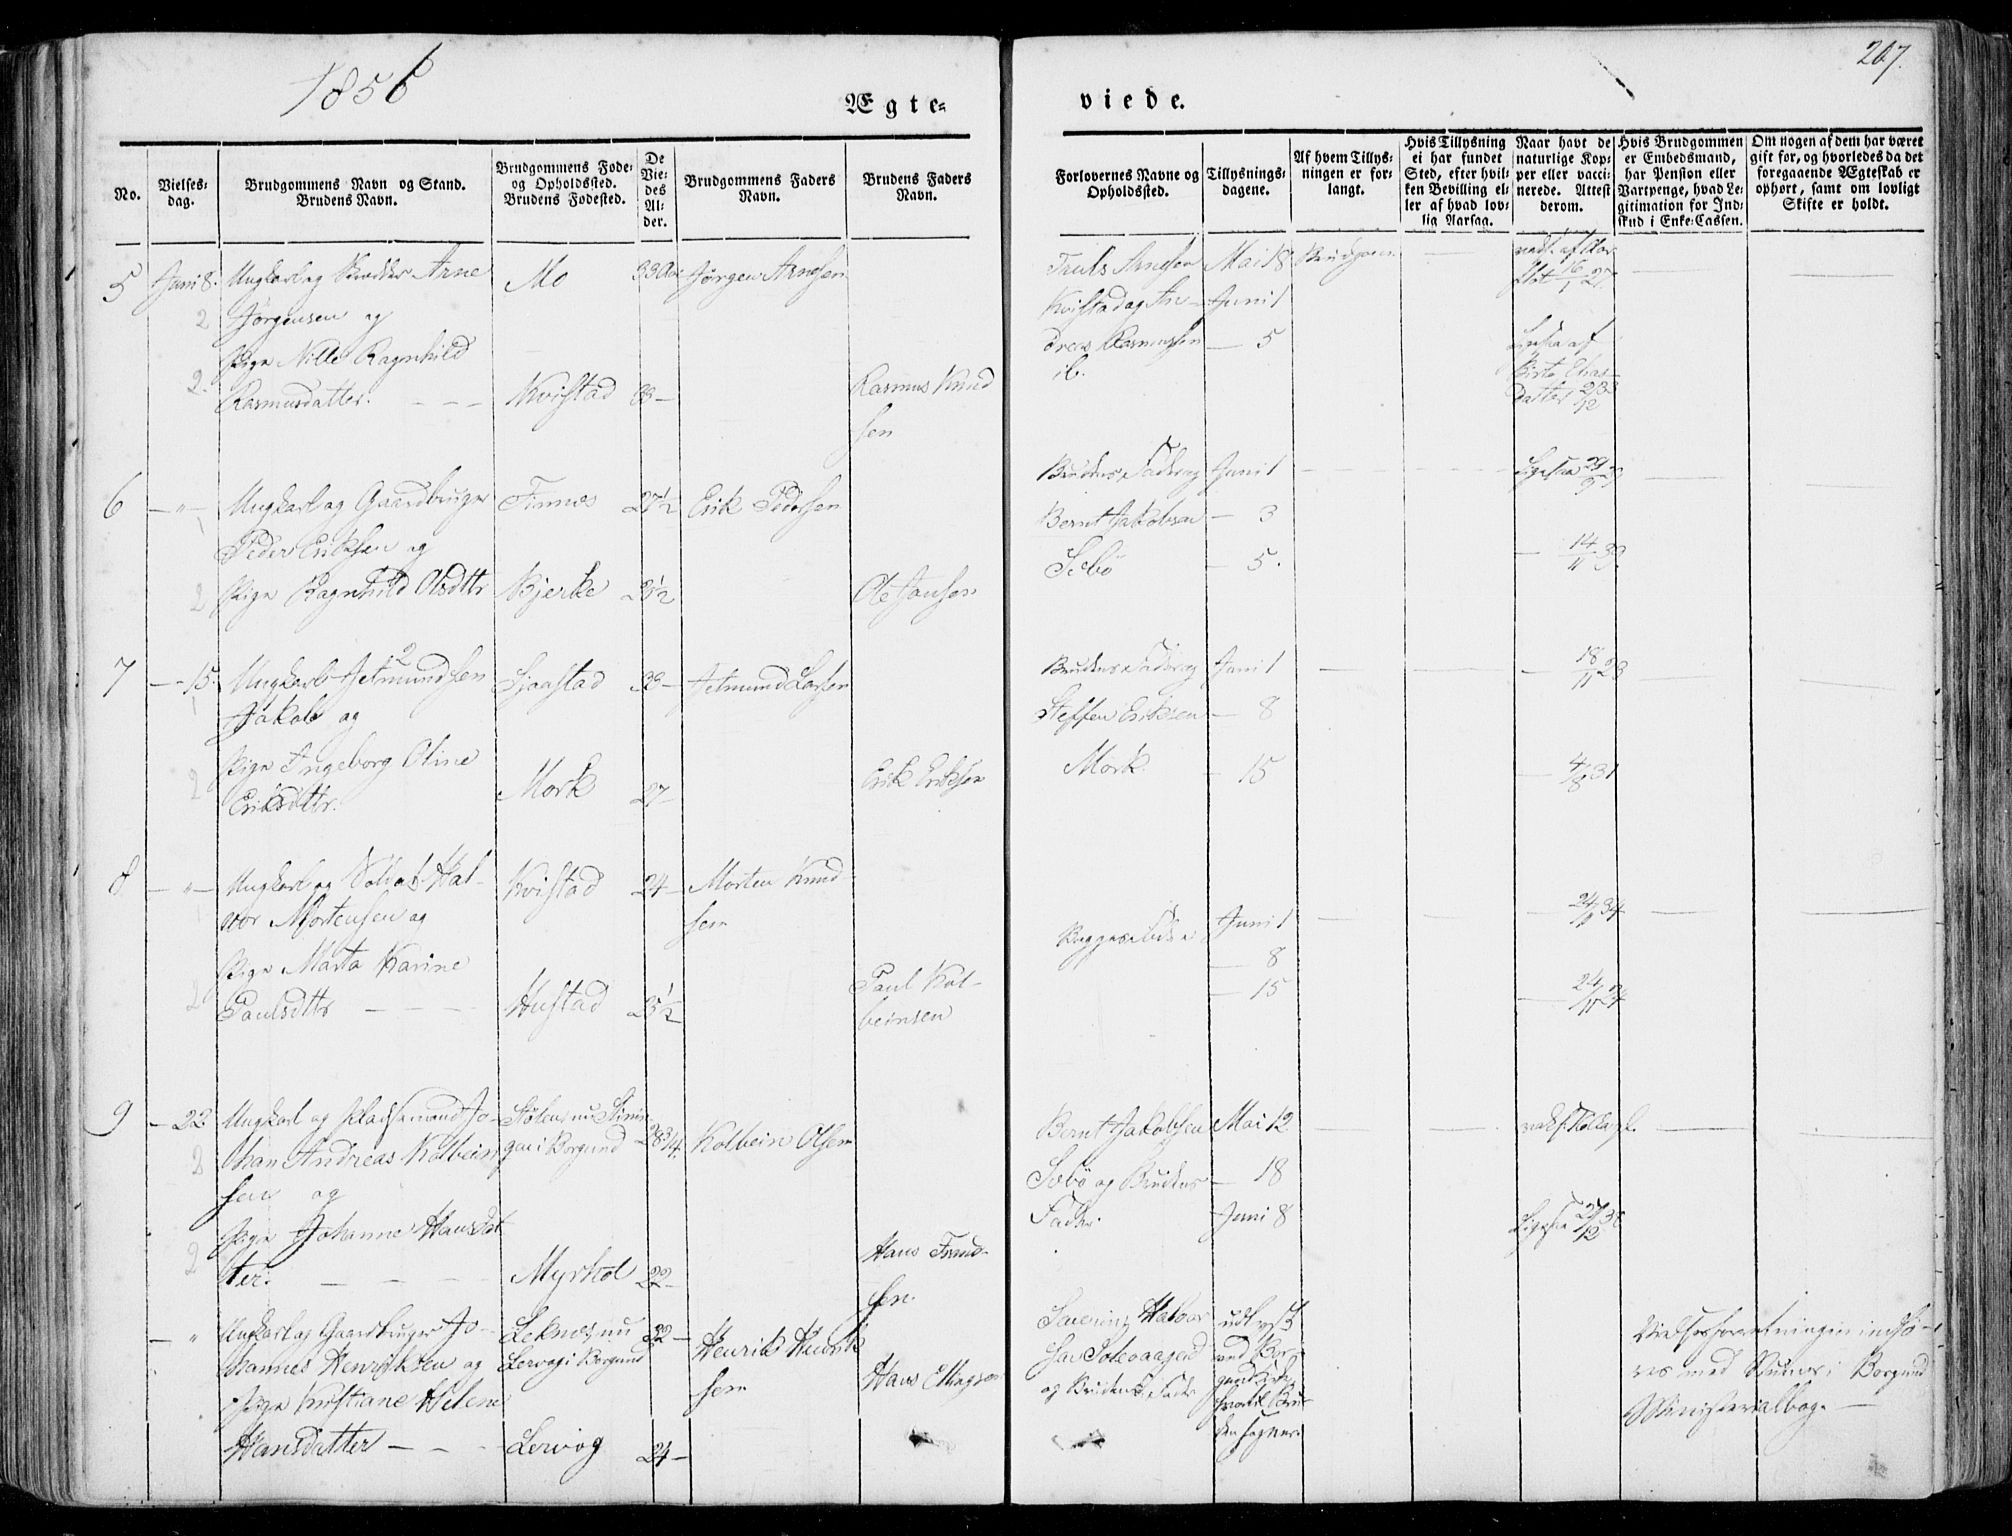 1856
207.
Ægte=
viede.
No.
Vielses-
dag.
Brudgommens Navn og Stand.
Brudens Navn.
Brudgommens Føde-
og Opholdssted.
Brudens Fødested.
De
Vie-
des
Al-
der.
Brudgommens Faders
Navn.
Brudens Faders
Navn.
Forlovernes Navne og
Opholdssted.
Tillysnings-
dagene.
Af hvem Tillys-
ningen er for-
langt.
Hvis Tillysning
ei har fundet
Sted, efter hvil-
ken Bevilling el-
ler af hvad lov-
lig Aarsag.
Naar havt de
naturlige Kop-
per eller vacci-
nerede. Attest
derom.
Hvis Brudgommen
er Embedsmand,
har Pension eller
Vartpenge, hvad Le-
gitimation for Ind-
skud i Enke-Cassen.
Om nogen af dem har været
gift for, og hvorledes da det
foregaaende Ægteskab er
ophørt, samt om lovligt
Skifte er holdt.
5
Juni 8.
Ungkarl og Arne
Jørgensen og
Pige Nille Ragnhild
Rasmusdatter.
Mo
Kvistad
33 Aar
33
Jørgen Arnesen
Rasmus Knud
sen
Truls Arnesen
Kvistad og An-
dreas Rasmussen
ib.
Mai 18
Juni 1
— 5
Brudgom.
Ligesaa af
Datter
6
— " —
Ungkarl og Gaardbruger
Peder Eriksen og
Pige Ragnhild Olsdttr
Finnes
Bjerke
27½
23½
Erik Pedersen
Ole Jansen
Brudens Fader og
Bernt Jakobsen
Sæbø
Juni 1
— 3
— 5.
Ligesaa
14/11 33.
7
— 15.
Ungkarl Jetmundsen
Jakob og
Pige Ingeborg Oline
Eriksdttr.
Sjaastad
Mork
33 —
27
Jetmund Larsen
Erik Eriksen
Brudens Fader og
Steffen Eriksen
Mork.
Juni 1
— 8
— 15
18/11 23
4/8 31
8
— " —
Ungkarl og Soldat Hal-
vor Mortensen og
Pige Marta Karine
Paulsdttr
Kvistad
Hustad
24 —
25½
Morten Knud
sen
Paul Kol-
beinsen
Begges Fædre
Juni 1
— 8
— 15
9
— 22
Ungkarl og Pladsemand Jo-
han Andreas Kolbein
sen og
Pige Johanne Hansdat
ter.
Stølen, nu
i Borgund
Myrhol
28 3/4.
22 —
Kolbein Olsen
Hans Knud-
sen.
Bernt Jakobsen
Sæbø og Brudens
Fader.
Mai 12
— 18
Juni 8
Ligesaa
— "
Ungkarl og Gaardbruger Jo-
hannes Henriksen og
Pige Kristiane Helene
Hansdatter
Leknes, nu
Lervog i Borgund
Lervog
32 —
24 —
Henrik Henrik
sen
Hans Ellingsen
Severin Halvor
sen Solevaagseid
og Brudens Fader
udlyst
ved Bor-
gund Kirke
hvortil Bru-
den sogner.
Vielsesforretningen indfø-
res med Numer i Borgund
Ministerialbog. —